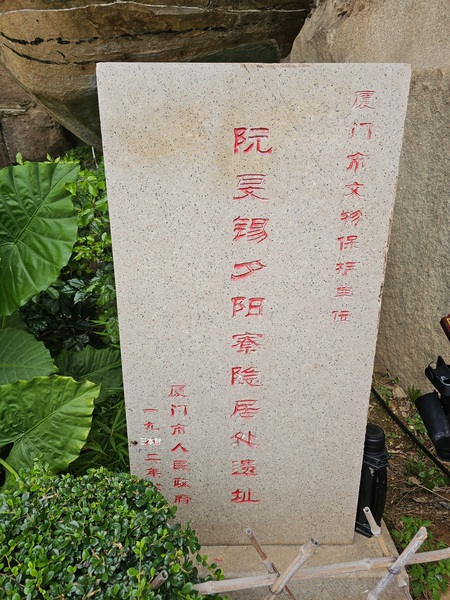 厦门市文物保护单位
阮旻锡夕阳寮隐居处遗址
厦门市人民政府
一九二年